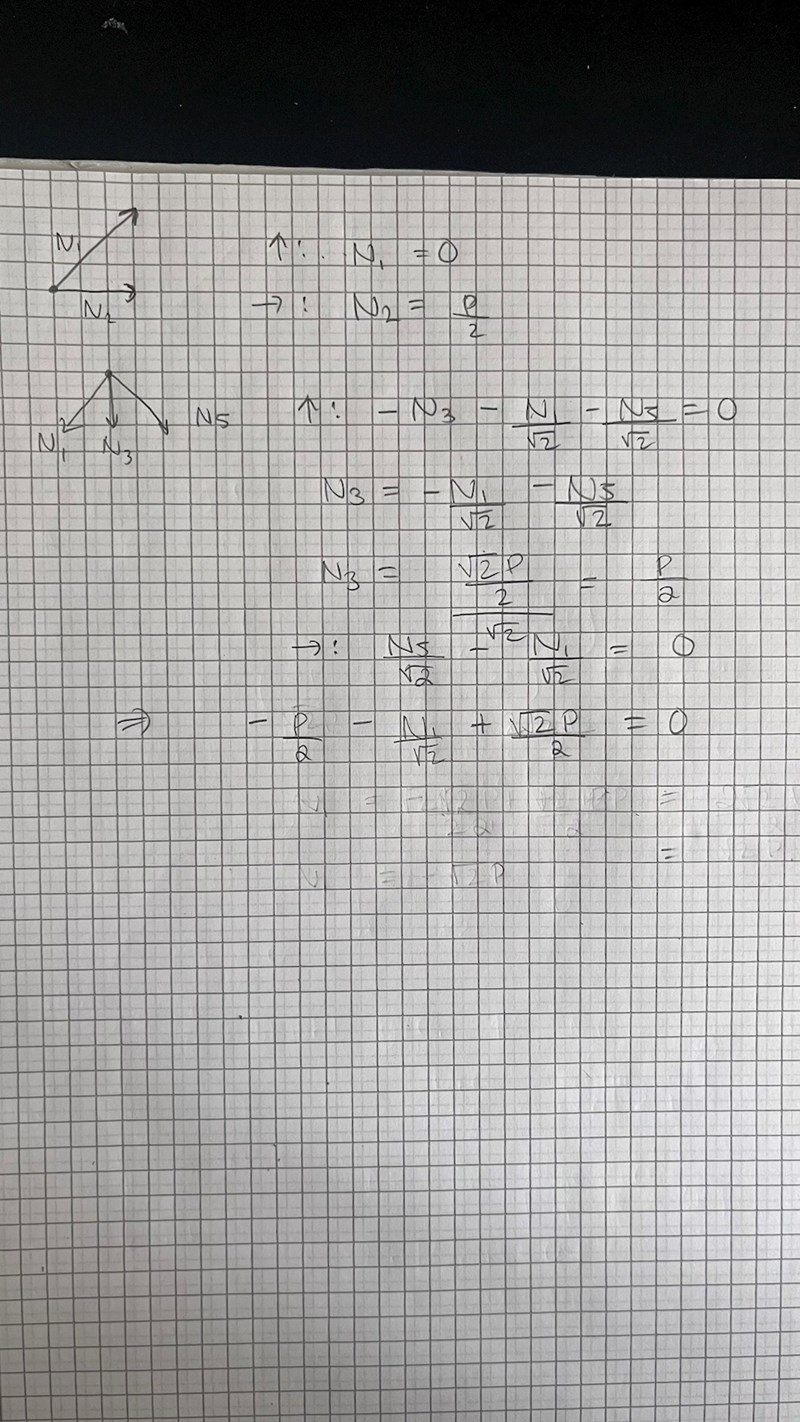 N₁
N₂
↑: N₁ = 0
→: N₂ = P/2
N₁ N₃ N5
↑: - N₃ - N₁/√2 - N5/√2 = 0
N₃ = - N₁/√2 - N5/√2
N₃ = (√2 P/2)/√2 = P/2
→: N5/√2 - N₁/√2 = 0
⇒ - P/2 - N₁/√2 + √2 P/2 = 0
= - √2 P